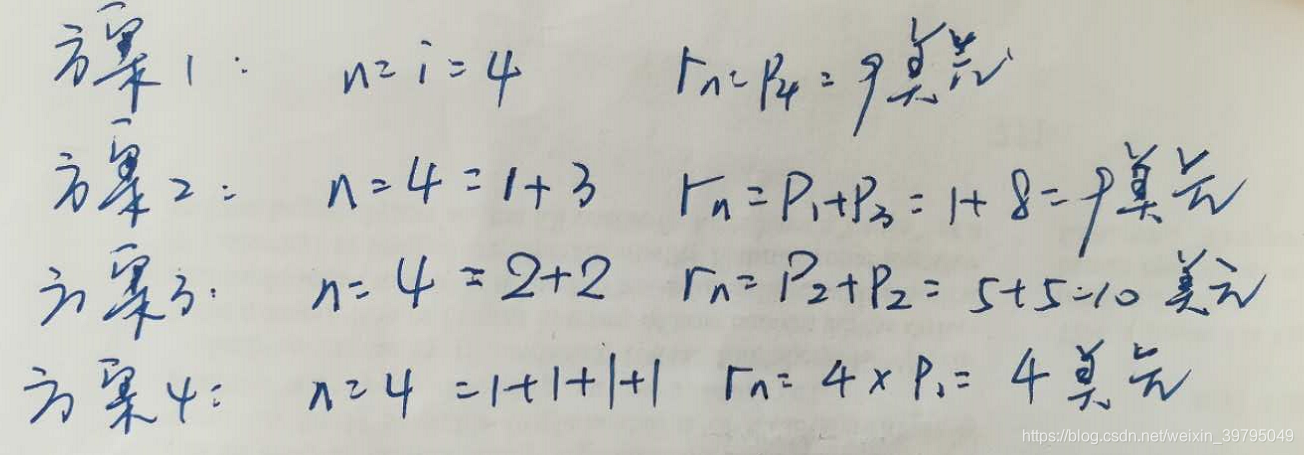 方案1: n=i=4 rn=P4=9美元
方案2: n=4=1+3 rn=P1+P3=1+8=9美元
方案3: n=4=2+2 rn=P2+P2=5+5=10美元
方案4: n=4=1+1+1+1 rn=4×P1=4美元
https://blog.csdn.net/weixin_39795049